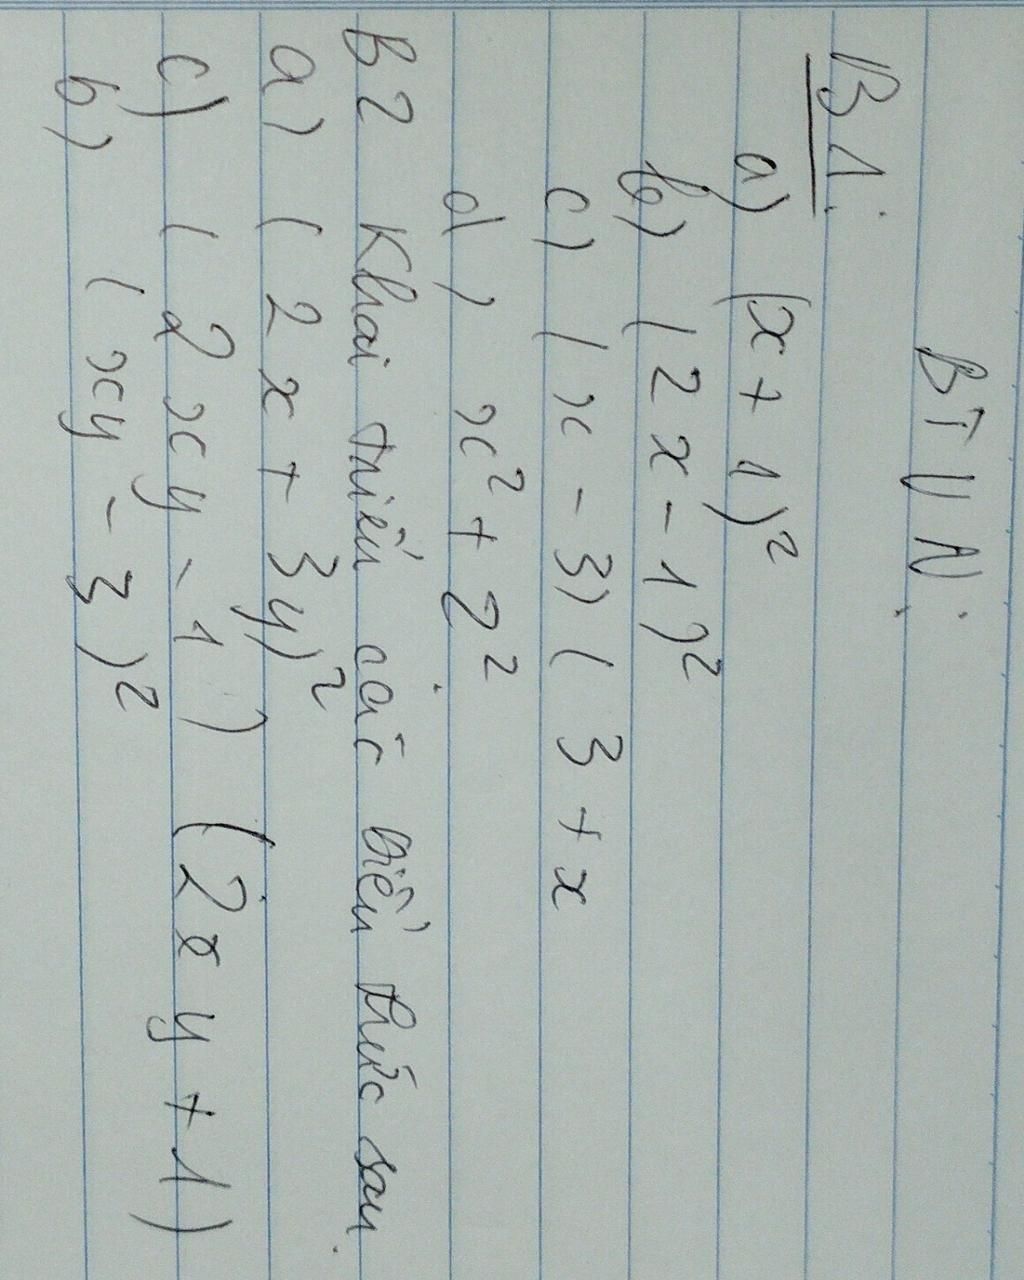 BTVN:
B1:
a) (x + 1)²
b) (2x - 1)²
c) (x - 3) (3 + x
d) x² + 2²
B2 Khai triển các biểu thức sau.
a) (2x + 3y)²
c) (2xy - 1) (2xy + 1)
b) (xy - 3)²